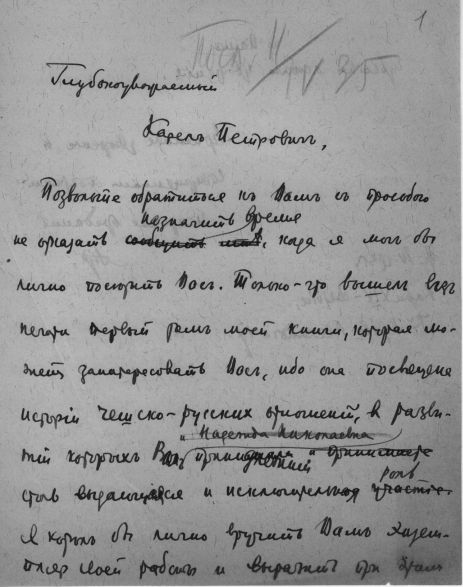 1
Глубокоуважаемый
Карелъ Петровичъ,
Позвольте обратиться къ Вамъ съ просьбою
назначить время
не отказать сообщить мнѣ, когда я могъ бы
лично посѣтить Васъ. Только-что вышелъ изъ
печати первый томъ моей книги, которая мо-
жетъ заинтересовать Васъ, ибо она посвящена
исторіи чешско-русскихъ отношеній, въ разви-
"Надежда Николаевна
тіи которыхъ
роль
столь выдающаяся и исключительная участіе.
Я хотѣлъ бы лично вручить Вамъ экзем-
пляръ своей работы и выразить при этомъ